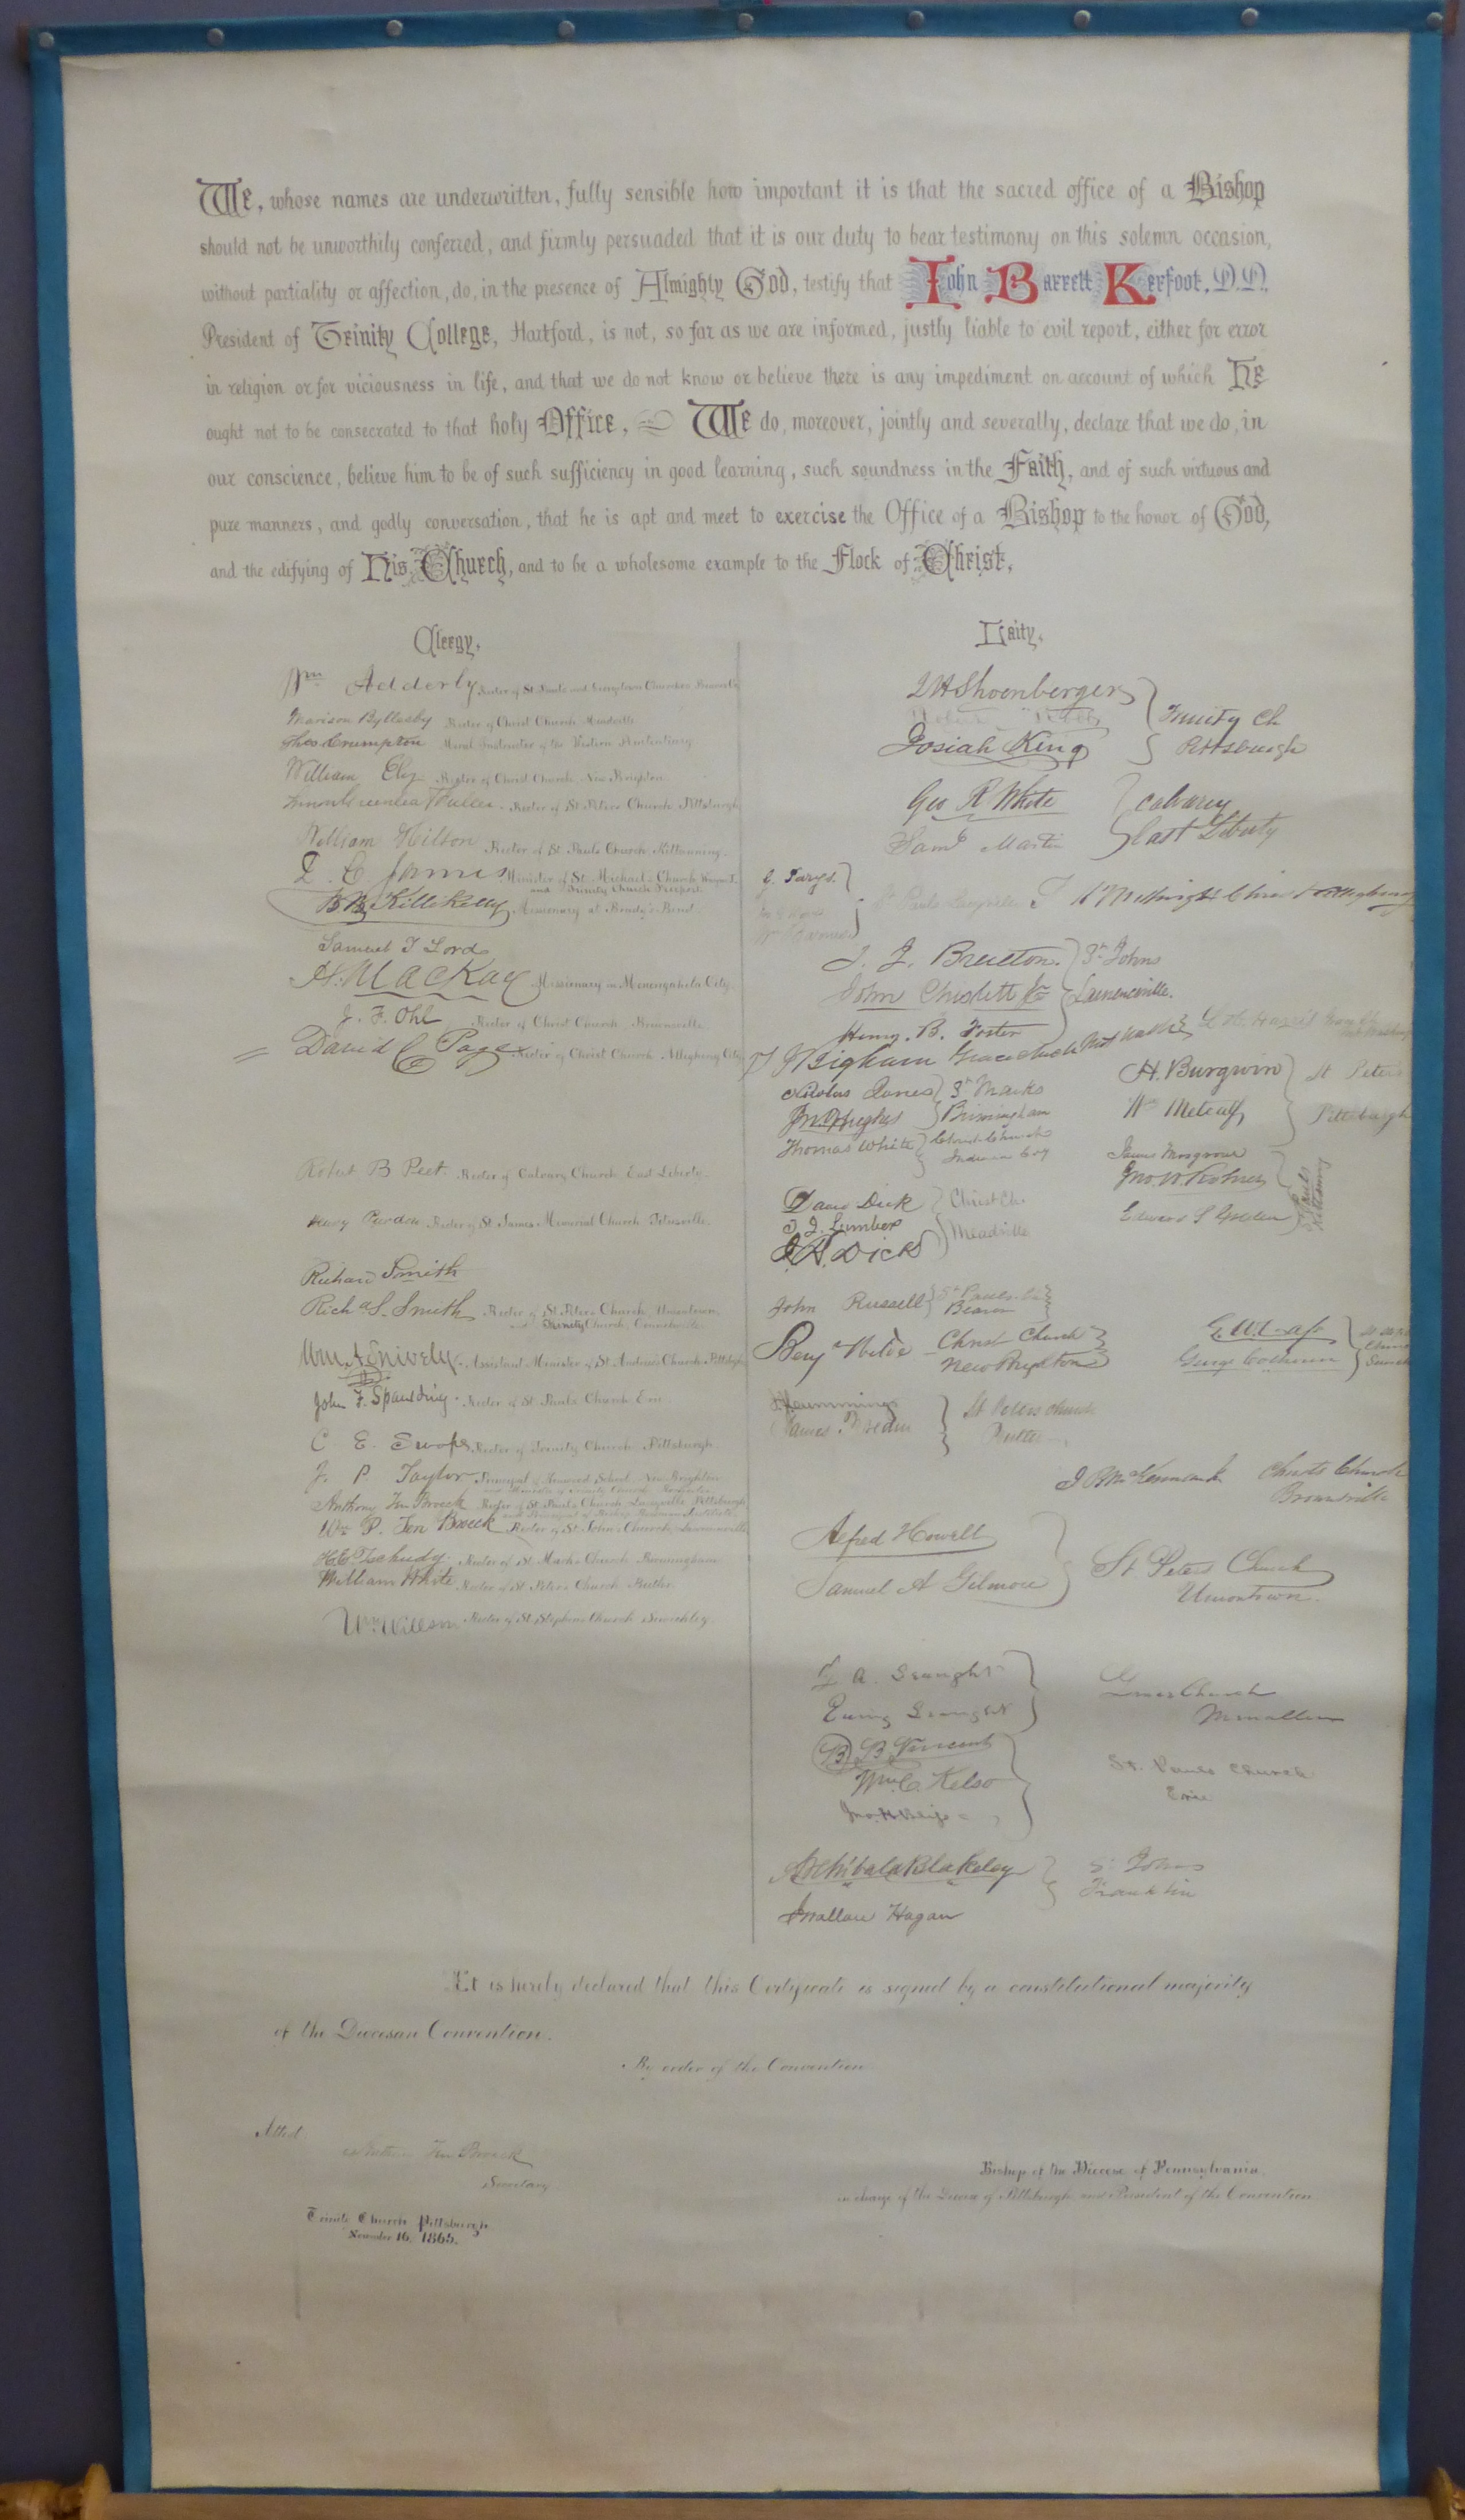 We, whose names are underwritten, fully sensible how important it is that the sacred office of a Bishop
should not be unworthily conferred, and firmly persuaded that it is our duty to bear testimony on this solemn occasion,
without partiality or affection, do, in the presence of Almighty God, testify that John Barrett Kerfoot, D.D.,
President of Trinity College, Hartford, is not, so far as we are informed, justly liable to evil report, either for error
in religion or for viciousness in life, and that we do not know or believe there is any impediment on account of which He
ought not to be consecrated to that holy Office, We do, moreover, jointly and severally, declare that we do, in
our conscience, believe him to be of such sufficiency in good learning, such soundness in the Faith, and of such virtuous and
pure manners, and godly conversation, that he is apt and meet to exercise the Office of a Bishop to the honor of God,
and the edifying of His Church, and to be a wholesome example to the Flock of Christ.
Clergy,
Wm Adderly Rector of St. Pauls and Georgetown Churches
Marison Byllesby Rector of Christ Church Meadville
Thos Crumpton Moral Instructor of the Western Penitentiary
William Ely Rector of Christ Church New Brighton
Fuller Rector of St. Peters Church Pittsburgh
William Hilton Rector of St. Pauls Church Kittanning
Minister of St. Michaels Church
and Trinity Church Freeport.
B B Killikelly Missionary at Brady's Bend
Samuel T Lord
A. MacKay Missionary in Monongahela City
J. F. Ohl Rector of Christ Church Brownsville
David C Page Rector of Christ Church Allegheny City
Robert B Peet Rector of Calvary Church East Liberty
Henry Purdon Rector of St. James Memorial Church Titusville
Richard Smith
Richd S. Smith Rector of St. Peters Church Uniontown
and Trinity Church, Connellsville
Wm A Snively Assistant Minister of St. Andrews Church Pittsburgh
John F. Spaulding Rector of St. Pauls Church Erie
C E Swope Rector of Trinity Church Pittsburgh
J. P. Taylor Principal of School New Brighton
Anthony Ten Broeck Rector of St. Pauls Church Laceyville Pittsburgh
Wm P. Ten Broeck Rector of St. Johns Church Lawrenceville
Tschudy Rector of St. Marks Church Birmingham
William White Rector of St. Peters Church Butler
Wm Willson Rector of St. Stephens Church Sewickley
Laity,
J H Shoenberger
Josiah King
Trinity Ch
Pittsburgh
Geo R White
Saml Martin
Calvary
East Liberty
St Pauls Laceyville
J. J. Brueton.
John Chislett Jr
Henry. B. Foster
St Johns
Lawrenceville.
J Bigham Grace Church Mt Washn
Nicholas Jones
Jno Hughes
St Marks
Birmingham
H. Burgwin
Wm Metcalf
St Peters
Pittsburgh
Thomas White
Christ Church
Indiana
James Mosgrove
Davd Dick
J. H. Dick
Christ Ch.
Meadville
St Pauls
Kittanning
John Russell
St Pauls Ch
Benj Wilde Christ Church
New Brighton
George
James Bredin
St Peters Church
Butler
Christs Church
Brownsville
Alfred Howell
Samuel A Gilmore
St. Peters Church
Uniontown.
Church
Menallen
B B Vincent
Wm C. Kelso
St. Pauls Church
Erie
Archibald Blakeley
St Johns
Franklin
Hagan
It is hereby declared that this Certificate is signed by a constitutional majority
of the Diocesan Convention.
By order of the Convention
Attest.
Ten Broeck
Secretary
Bishop of the Diocese of Pennsylvania,
in charge of the Diocese of Pittsburgh and President of the Convention
Trinity Church Pittsburgh
November 16, 1865.